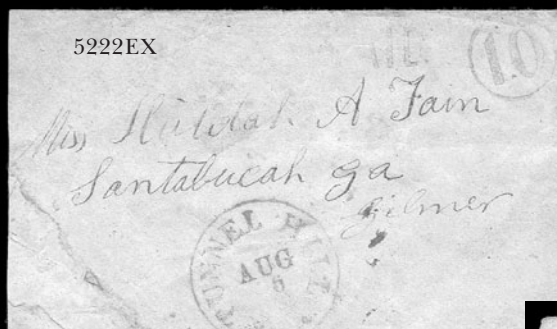 5222EX
10
Miss Huldah A Fain
Santabucah ga
Gilmer
TUNNEL HILL
AUG
6